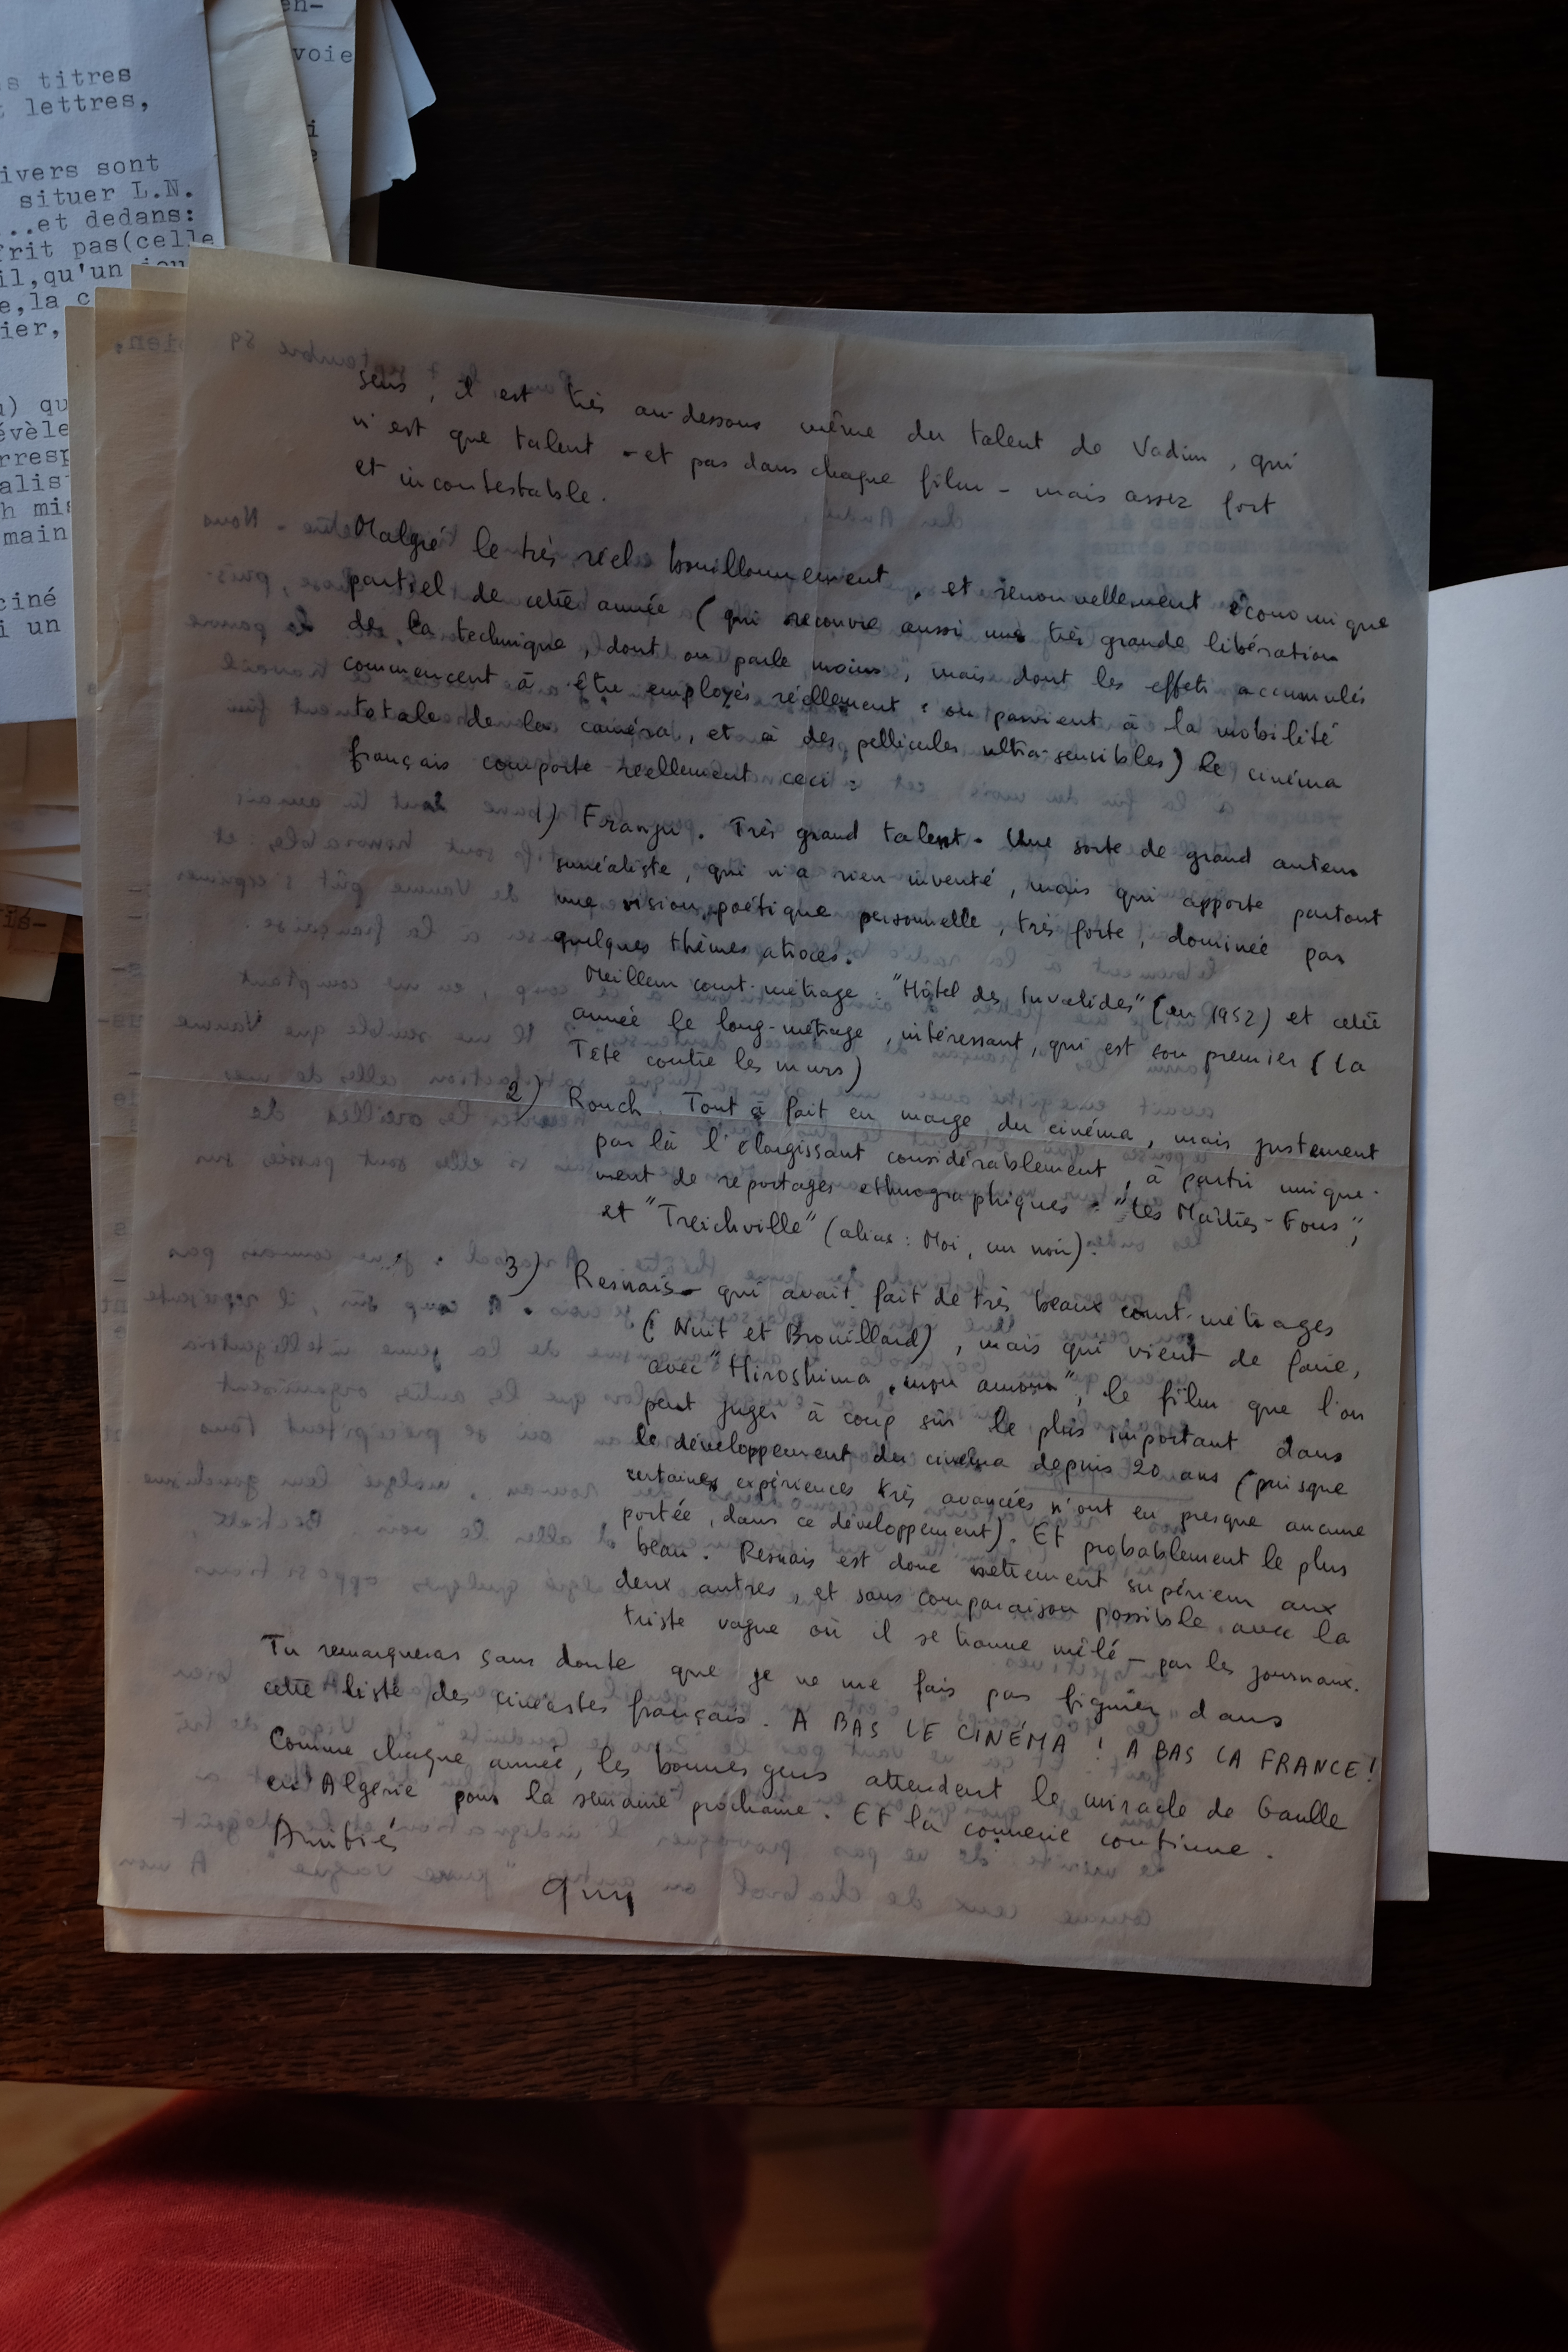 en-
voie
s titres
t lettres,
ivers sont
situer L.N.
...et dedans:
frit pas(celle
il,qu'un jou
e,la c
ier,
) qu
évèle
rresp
alist
h mis
main
ciné
i un
sens, il est très au-dessous même du talent de Vadim, qui
n'est que talent - et pas dans chaque film - mais assez fort
et incontestable.
Malgré le très réel bouillonnement, et renouvellement économique
partiel de cette année (qui recouvre aussi une très grande libération
de la technique, dont on parle moins, mais dont les effets accumulés
commencent à être employés réellement : on parvient à la mobilité
totale de la caméra, et à des pellicules ultra-sensibles) le cinéma
français comporte réellement ceci :
1) Franju. Très grand talent. Une sorte de grand auteur
surréaliste, qui n'a rien inventé, mais qui apporte partout
une vision poétique personnelle, très forte, dominée par
quelques thèmes atroces.
Meilleur court-métrage : "Hôtel des Invalides" (en 1952) et cette
année le long-métrage, intéressant, qui est son premier (La
Tête contre les murs)
2) Rouch. Tout à fait en marge du cinéma, mais justement
par là l'élargissant considérablement, à partir unique-
ment de reportages ethnographiques : "Les Maîtres-Fous",
et "Treichville" (alias : Moi, un noir).
3) Resnais - qui avait fait de très beaux court-métrages
(Nuit et Brouillard), mais qui vient de faire,
avec "Hiroshima, mon amour", le film que l'on
peut juger à coup sûr le plus important dans
le développement du cinéma depuis 20 ans (puisque
certaines expériences très avancées n'ont eu presque aucune
portée, dans ce développement). Et probablement le plus
beau. Resnais est donc nettement supérieur aux
deux autres, et sans comparaison possible avec la
triste vague où il se trouve mêlé - par les journaux.
Tu remarqueras sans doute que je ne me fais pas figurer dans
cette liste des cinéastes français. A BAS LE CINÉMA ! A BAS LA FRANCE !
Comme chaque année, les bonnes gens attendent le miracle de Gaulle
en Algérie pour la semaine prochaine. Et la connerie continue.
Amitiés
Guy